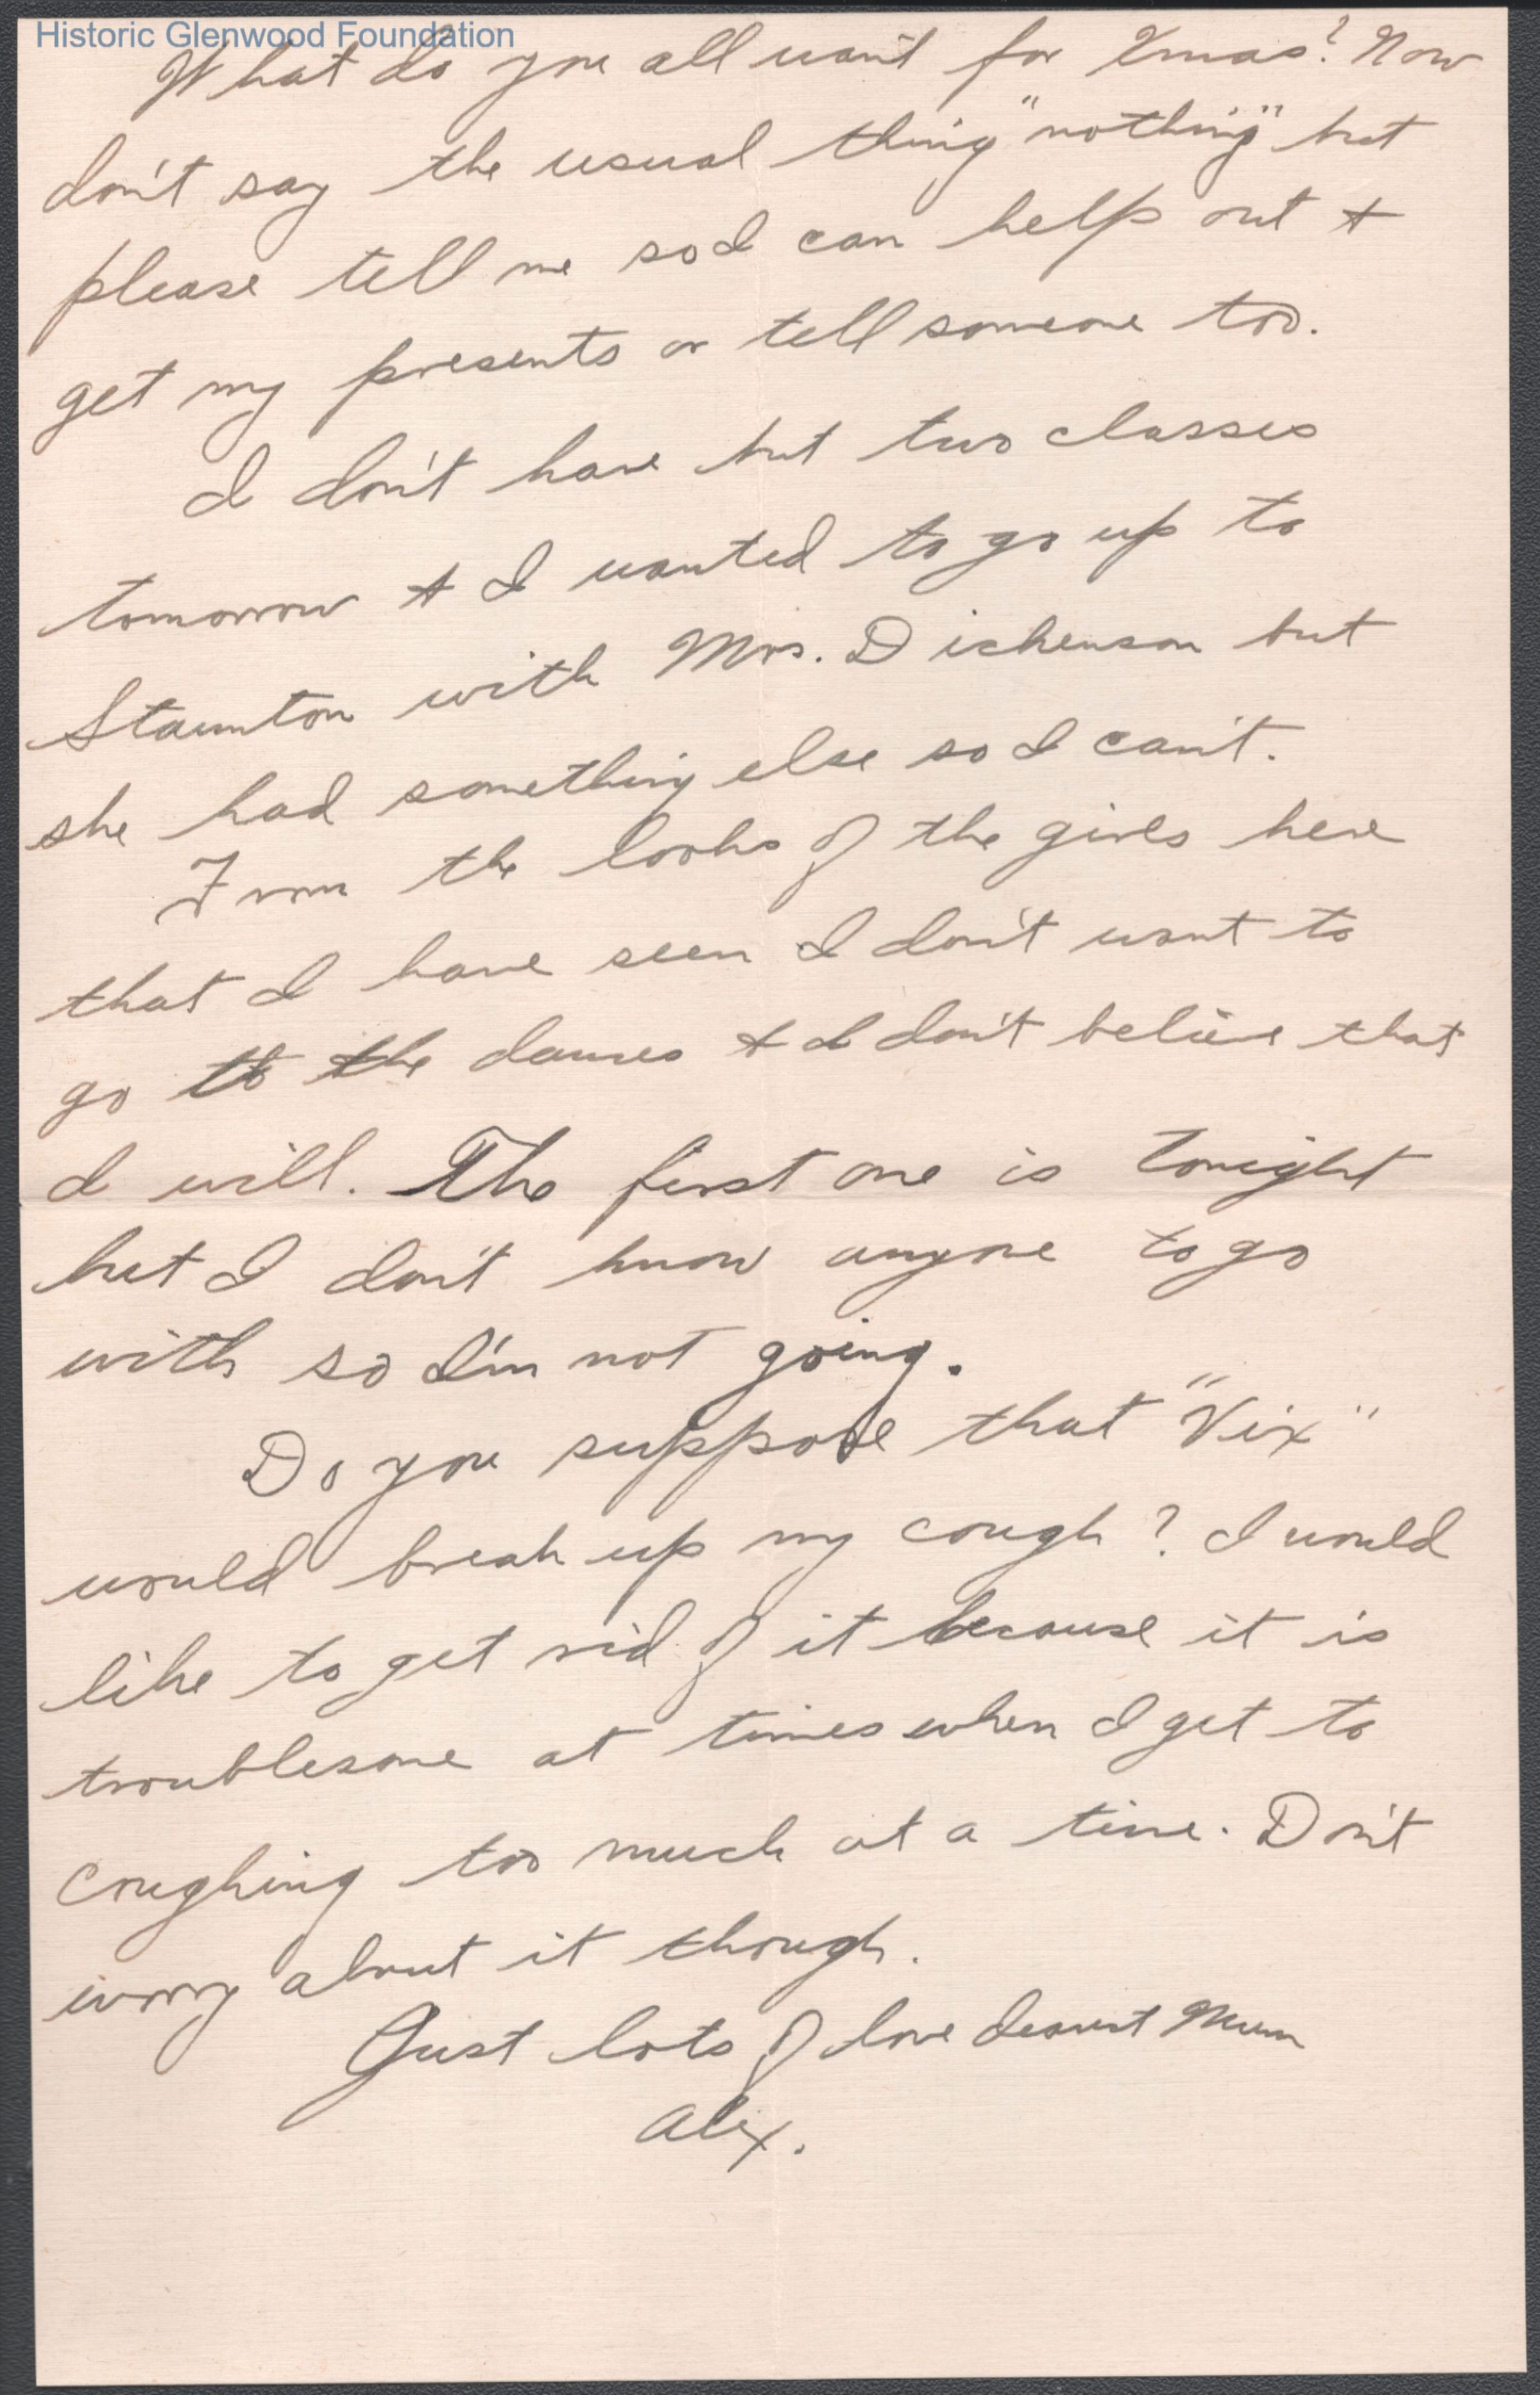 Historic Glenwood Foundation
What do you all want for Xmas? Now
don't say the usual thing "nothing" but
please tell me so I can help out &
get my presents or tell someone too.
I don't have but two classes
tomorrow & I wanted to go up to
Staunton with Mrs. Dickenson but
she had something else so I can't.
From the looks of the girls here
that I have seen I don't want to
go to the dances & I don't believe that
I will. The first one is tonight
but I don't know anyone to go
with so I'm not going.
Do you suppose that "Vix"
would break up my cough? I would
like to get rid of it because it is
troublesome at times when I get to
coughing too much at a time. Don't
worry about it though.
Just lots of love dearest Mum
Alex.